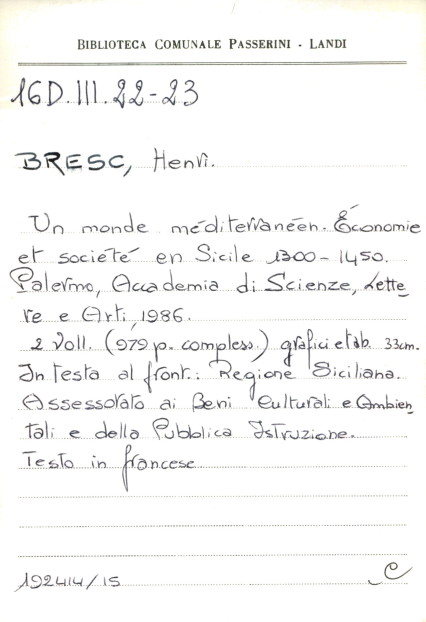 BIBLIOTECA COMUNALE PASSERINI - LANDI
16D.III.22-23
BRESC, Henri.
Un monde méditerranéen. Économie
et société en Sicile 1300-1450.
Palermo, Accademia di Scienze, Lette
re e Arti, 1986.
2 Voll. (979 p. compless.) grafici e tab. 33cm.
In testa al front.: Regione Siciliana.
Assessorato ai Beni Culturali e Ambien
tali e della Pubblica Istruzione.
Testo in francese
192414/15
C